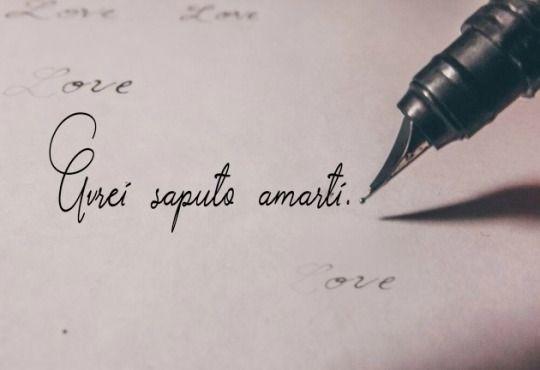 Love Love
Love
Avrei saputo amarti.
Love